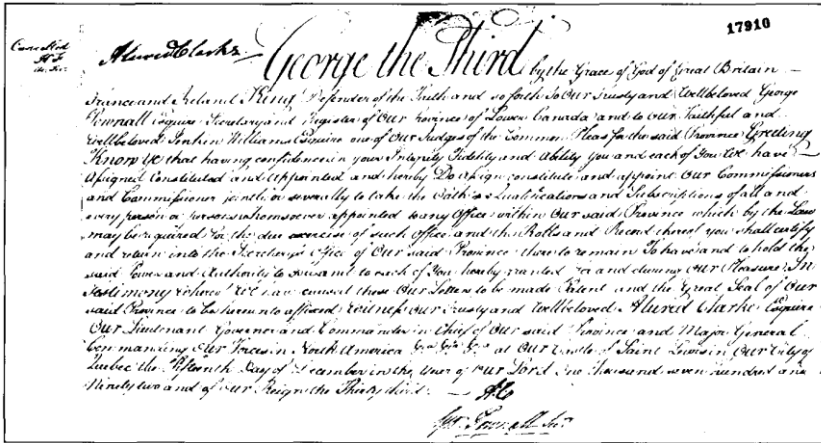 17910
Cancelled
Alured Clarke
George the Third by the Grace of God of Great Britain
France and Ireland King Defender of the Faith and so forth To Our Trusty and Wellbeloved George
Pownall Esquire Secretary and Register of Our Province of Lower Canada and to Our Faithful and
Wellbeloved Jenkin Williams Esquire one of Our Judges of the Common Pleas for the said Province Greeting
Know Ye that having confidence in your Integrity Fidelity and Ability you and each of You We have
Assigned Constituted and Appointed and hereby Do Assign constitute and appoint Our Commissioners
and Commissioner jointly or severally to take the Oaths Qualifications and Subscriptions of all and
every person or persons whomsoever appointed to any Office within Our said Province which by the Law
may be required for the due exercise of such Office and the Rolls and Record thereof you shall certify
and return into the Secretary's Office of Our said Province there to remain To have and to hold the
said Power and Authority to You and to each of You hereby granted for and during Our Pleasure In
Testimony whereof We have caused these Our Letters to be made Patent and the Great Seal of Our
said Province to be hereunto affixed Witness Our Trusty and Wellbeloved Alured Clarke Esquire
Our Lieutenant Governor and Commander in Chief of Our said Province and Major General
Commanding Our Forces in North America at Our Castle of Saint Lewis in Our City of
Quebec the Fifteenth Day of December in the Year of Our Lord One thousand seven hundred and
Ninety two and of Our Reign the Thirty third.
A.C.
Geo: Pownall Secy